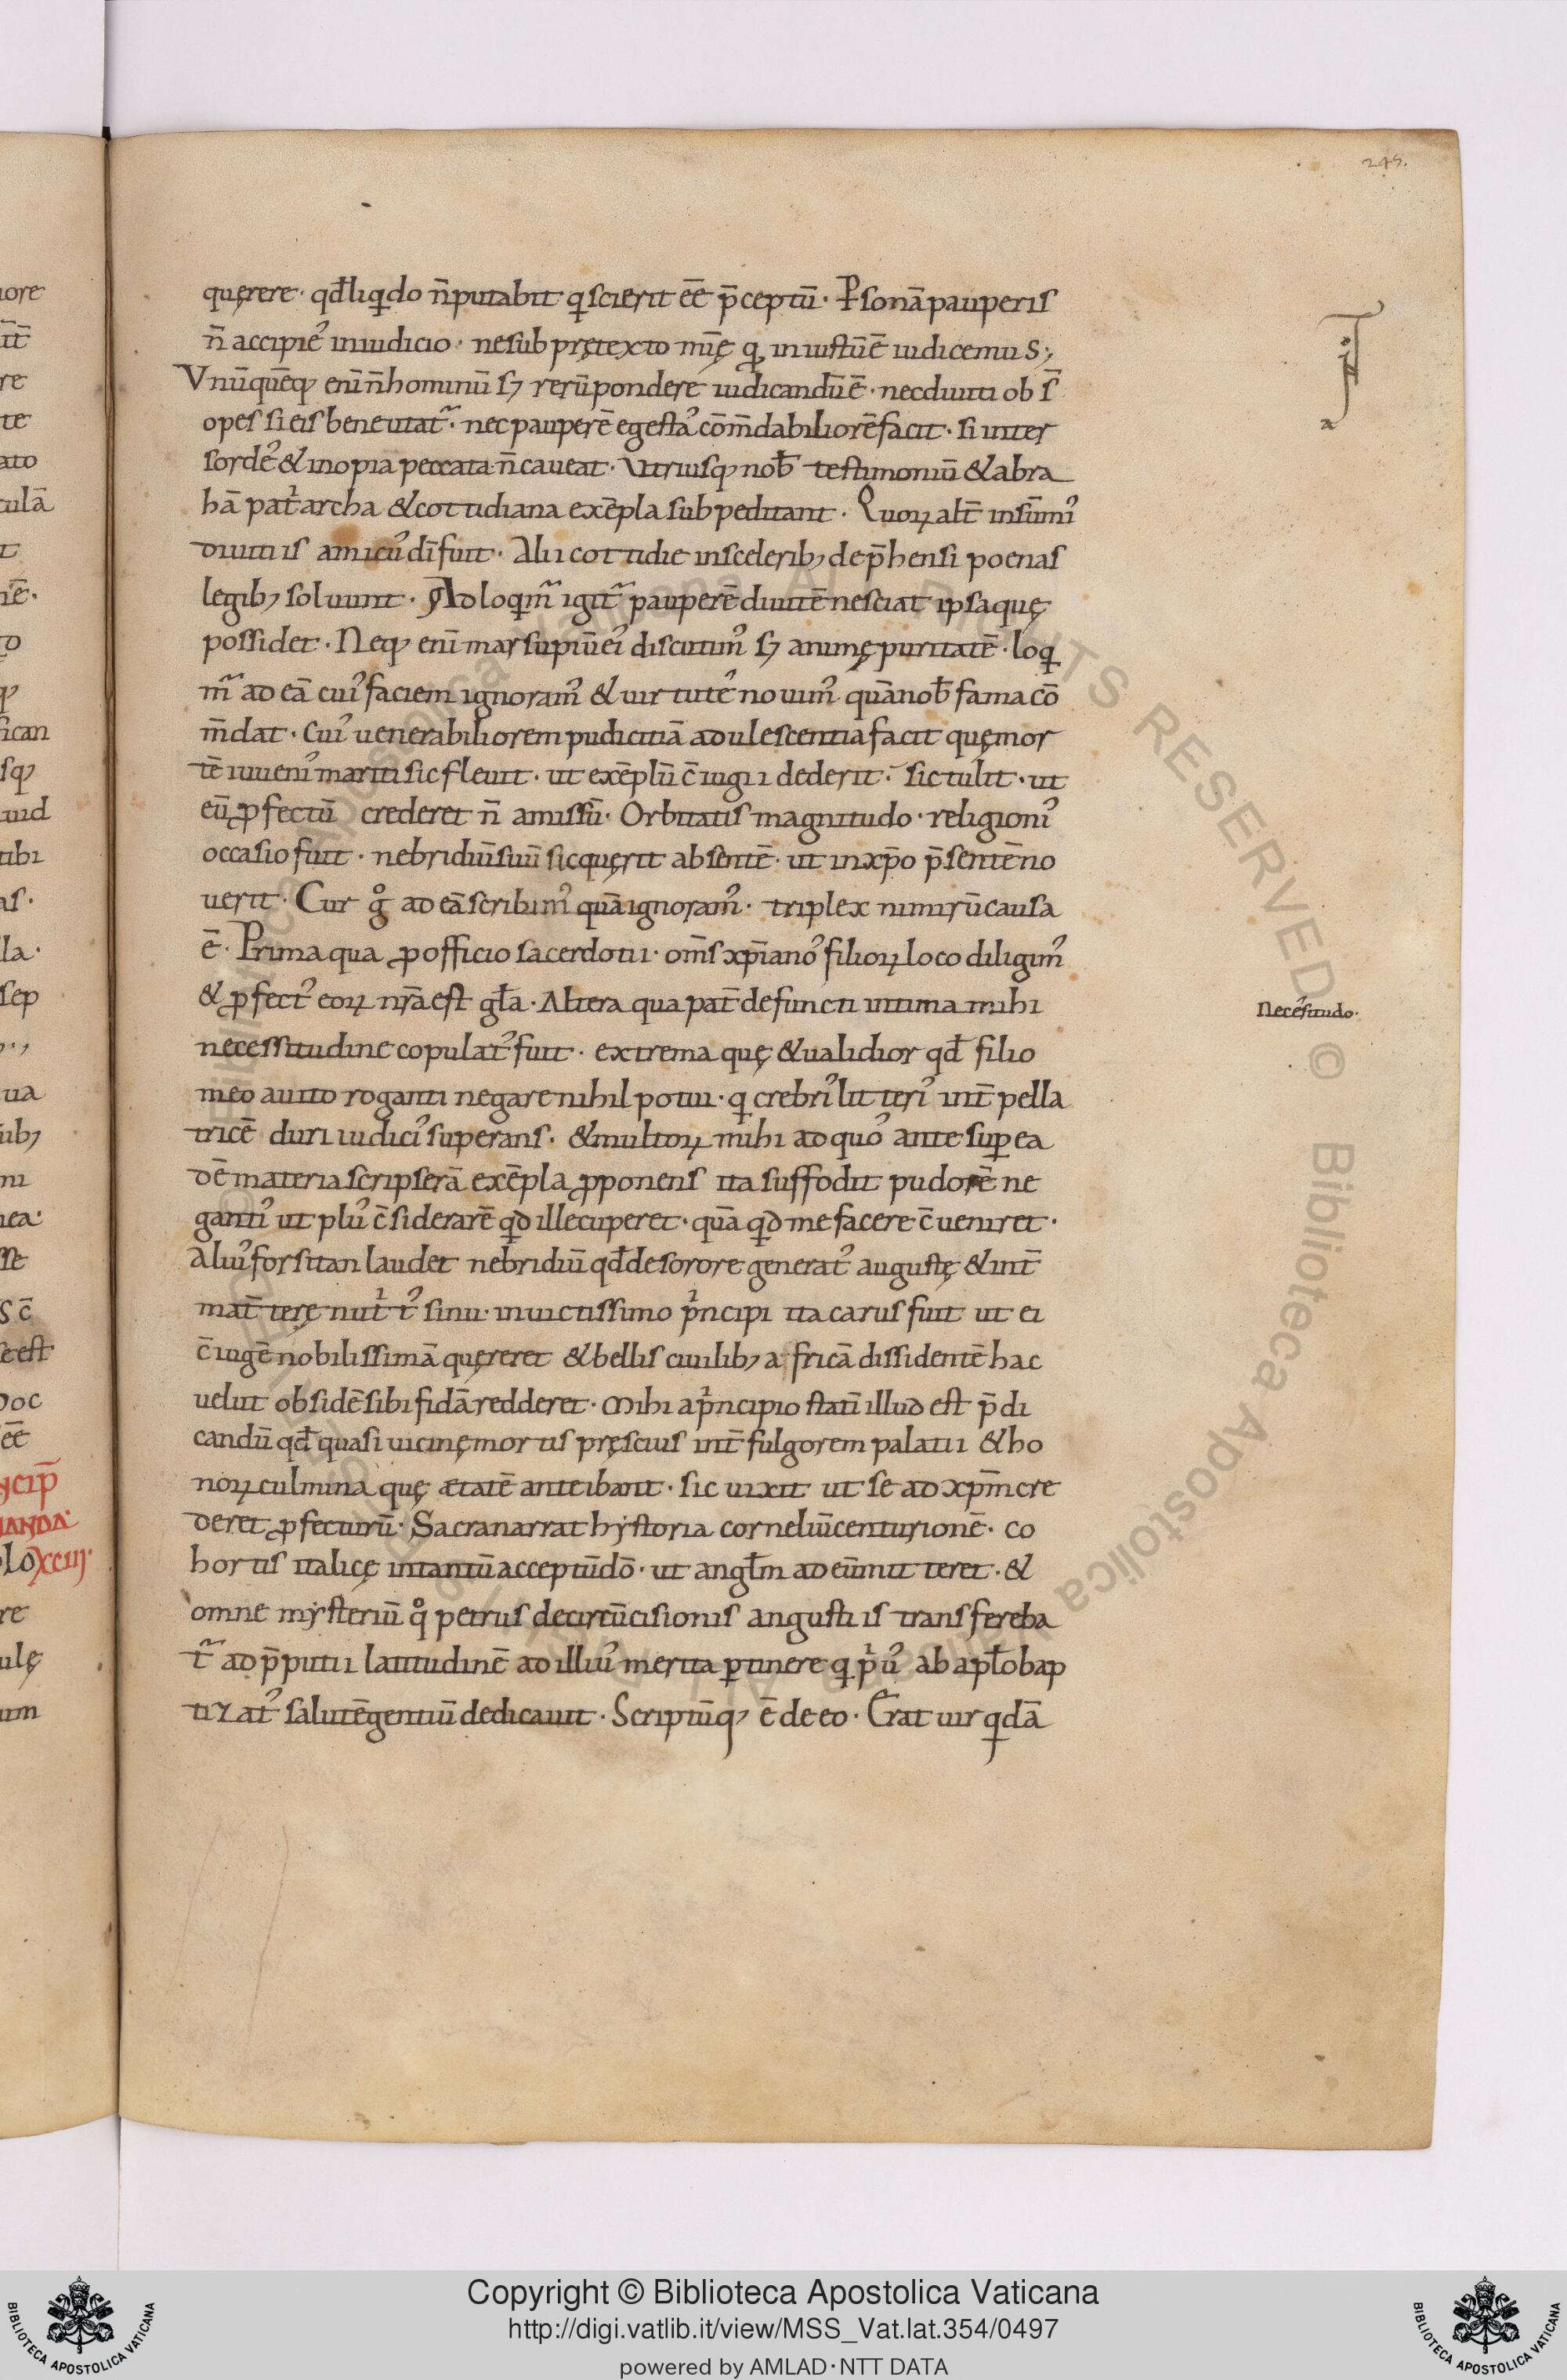 245.
quęrere· qđ liqido n̄ putabit q scierit ēē p̄ceptū· Ꝑsonā pauperis
n̄ accipie᾽ in iudicio· ne sub pretexto mīę q iniustū ē iudicemus;
Vnūquēq; enī n̄ hominū sꝫ rerū pondere iudicandū ē· nec diuiti ob s̄
opes si eis bene utat᷑· nec pauperē egesta᾽ cōm̄dabiliorē facit· si inter
sorde᾽ & inopia peccata n̄ caueat· Vtriusq; nob̄ testimoniū & abra
hā pat̍archa & cottidiana exēpla subpeditant· Quoꝝ alt̄ in sūmi᾽
diuitiis amicu᾽ dī fuit· Alii cottidie in sceleribꝫ dep̄hensi poenas
legibꝫ soluunt· Adloqm᷑ igit᷑ pauperē diuitē nesciat ipsa quę
possidet· Neq; enī marsupiū ei᾽ discutim᾽ sꝫ animę puritatē· loq
m᷑ ad eā cui᾽ faciem ignoram᾽ & uirtute᾽ nouim᾽ quā nob̄ fama cō
m̄dat· cui᾽ uenerabiliorem pudicitiā adulescentia facit quę mor
tē iuueni᾽ mariti sic fleuit· ut exēplū c̄iugii dederit· sic tulit· ut
eū ꝓfectū crederet n̄ amissū· Orbitatis magnitudo· religioni᾽
occasio fuit· nebridiū suū sic quęrit absentē· ut in xp̄o p̄sentē no
uerit· Cur gͦ ad eā scribim᾽ quā ignoram᾽· triplex nimirū causa
ē· Prima qua ꝓ officio sacerdotii· om̄s xp̄iano᾽ filioꝝ loco diligim᾽
& ꝓfect᾽ eoꝝ nr̄a est gl̄a· Altera qua pat̄ defuncti intima mihi
Necessitudo·
necessitudine copulat᾽ fuit· extrema quę & ualidior qđ filio
meo auito roganti negare nihil potui· q crebri᾽ litteri᾽ int̄pella
tricē duri iudici᾽ superans· & multoꝝ mihi ad quo᾽ ante suꝑ ea
dē materia scripserā exēpla ꝓponens ita suffodit pudorē ne
ganti᾽ ut plu᾽ c̄siderarē qd ille cuperet· quā qd me facere c̄ueniret·
Aliu᾽ forsitan laudet nebridiū qđ de sorore generat᾽ augustę & int̄
mat̄terę nut̍t᾽ sinu· inuictissimo p̍ncipi ita carus fuit ut ei
c̄iugē nobilissimā quęreret & bellis ciuilibꝫ africā dissidentē hac
uelut obsidē sibi fidā redderet· Mihi a p̍ncipio statī illud est p̄di
candū qđ quasi uicinę mortis pręscius int̄ fulgorem palatii & ho
noꝝ culmina quę ætatē anteibant· sic uixit ut se ad xp̄m cre
deret ꝓfecturū· Sacra narrat hystoria corneliū centurionē· co
hortis italicę intantū acceptū dō· ut angl̄m ad eū mitteret· &
omne mysteriū qͦ petrus de circūcisionis angustiis transfereba
t᷑ ad p̄putii latitudinē ad illiu᾽ merita ꝑtinere q p̍u᾽ ab apl̄o bap
tizat᾽ salutē gentiū dedicauit· Scriptūq; ē de eo· Erat uir qdā
Copyright © Biblioteca Apostolica Vaticana
http://digi.vatlib.it/view/MSS_Vat.lat.354/0497
powered by AMLAD·NTT DATA